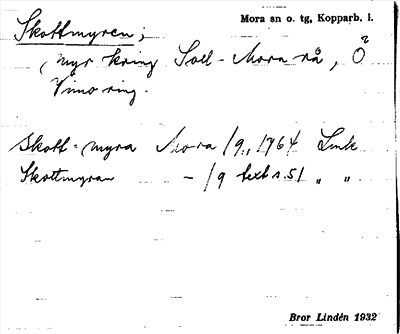 Skottmyren;
Mora sn o. tg, Kopparb. l.
(myr kring Soll-Mora rå, Ö
Vimo ring.
Skott-myra Mora /9., 1764 Link
Skottmyran — /9 text s. 51 „ „
Bror Lindén 1932